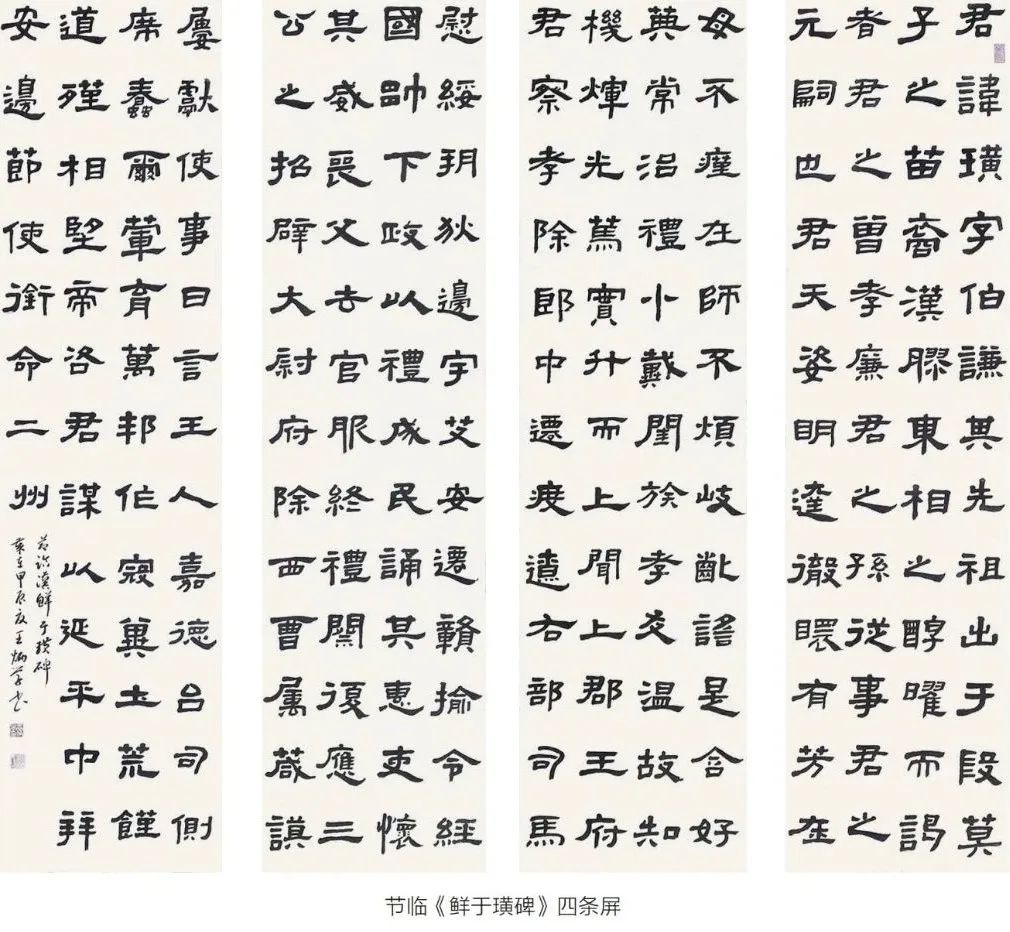 君諱璜字伯謙其先祖出于殷箕
子之苗裔漢膠東相之醇曜而謁
者君之曾孝廉君之孫從事君之
元嗣也君天姿明達徹瞏有芳在
母不瘞在師不煩岐嶷謠是含好
典常治禮小戴閨族孝友温故知
機煇光篤實升而上聞上郡王府
君察孝除郎中遷度遼右部司馬
慰綏朔狄邊宇艾安遷贛揄令經
國帥下政以禮成民誦其惠吏懷
其威喪父去官服終禮闋復應三
公之招辟大尉府除西曹屬葴謨
屢獻使事日言王人嘉德呂司側
席蠢爾葷育萬邦作寇冀土荒饉
道殣相望帝洛君謀以延平中拜
安邊節使銜命二州
节临漢鮮于璜碑
歲在甲辰夏王炳学书
节临《鲜于璜碑》四条屏